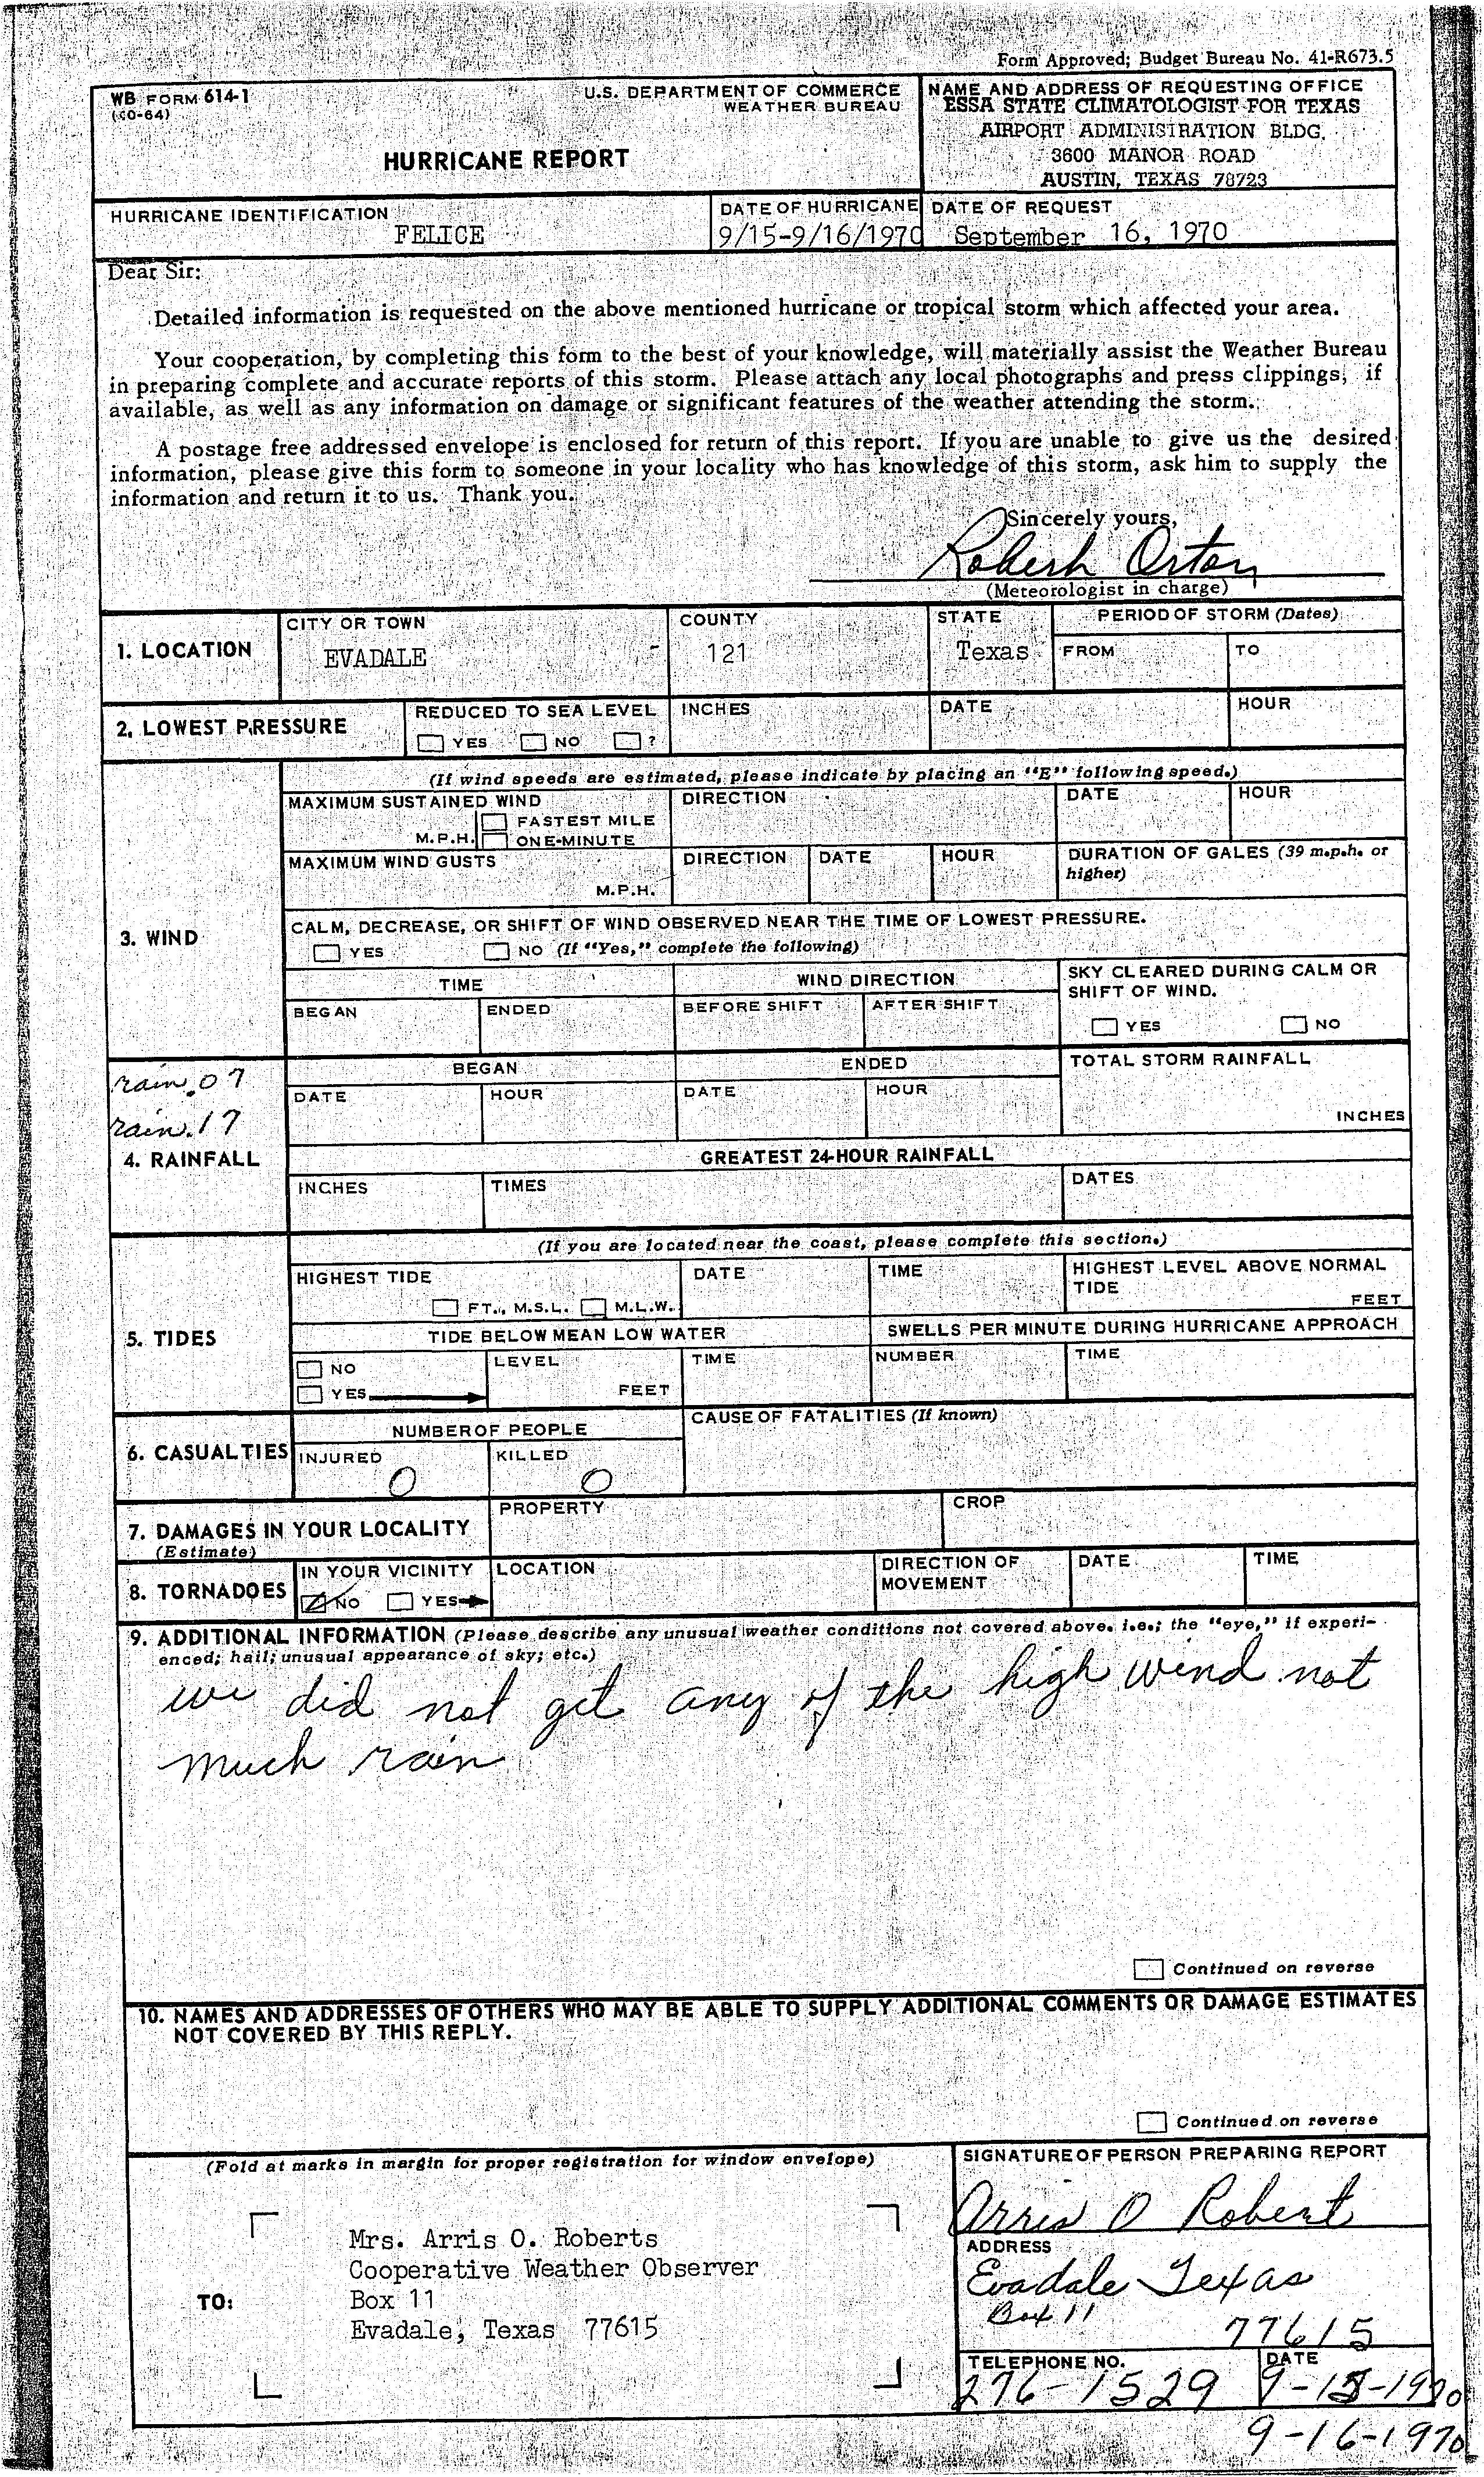 Form Approved; Budget Bureau No. 41-R673.5
WB FORM 614-1
(10-64)
U.S. DEPARTMENT OF COMMERCE
WEATHER BUREAU
HURRICANE REPORT
NAME AND ADDRESS OF REQUESTING OFFICE
ESSA STATE CLIMATOLOGIST FOR TEXAS
AIRPORT ADMINISTRATION BLDG.
3600 MANOR ROAD
AUSTIN, TEXAS 78723
HURRICANE IDENTIFICATION
FELICE
DATE OF HURRICANE
9/15-9/16/1970
DATE OF REQUEST
September 16, 1970
Dear Sir:
Detailed information is requested on the above mentioned hurricane or tropical storm which affected your area.
Your cooperation, by completing this form to the best of your knowledge, will materially assist the Weather Bureau
in preparing complete and accurate reports of this storm. Please attach any local photographs and press clippings, if
available, as well as any information on damage or significant features of the weather attending the storm.
A postage free addressed envelope is enclosed for return of this report. If you are unable to give us the desired
information, please give this form to someone in your locality who has knowledge of this storm, ask him to supply the
information and return it to us. Thank you.
Sincerely yours,
Robert Orton
(Meteorologist in charge)
1. LOCATION
CITY OR TOWN
EVADALE -
COUNTY
121
STATE
Texas
PERIOD OF STORM (Dates)
FROM
TO
2. LOWEST PRESSURE
REDUCED TO SEA LEVEL
YES NO ?
INCHES
DATE
HOUR
3. WIND
(If wind speeds are estimated, please indicate by placing an "E" following speed.)
MAXIMUM SUSTAINED WIND
FASTEST MILE
M.P.H. ONE-MINUTE
DIRECTION
DATE
HOUR
MAXIMUM WIND GUSTS
M.P.H.
DIRECTION
DATE
HOUR
DURATION OF GALES (39 m.p.h. or
higher)
CALM, DECREASE, OR SHIFT OF WIND OBSERVED NEAR THE TIME OF LOWEST PRESSURE.
YES NO (If "Yes," complete the following)
TIME
WIND DIRECTION
SKY CLEARED DURING CALM OR
SHIFT OF WIND.
BEGAN
ENDED
BEFORE SHIFT
AFTER SHIFT
YES NO
rain .07
rain .17
4. RAINFALL
BEGAN
ENDED
TOTAL STORM RAINFALL
DATE
HOUR
DATE
HOUR
INCHES
GREATEST 24-HOUR RAINFALL
INCHES
TIMES
DATES
5. TIDES
(If you are located near the coast, please complete this section.)
HIGHEST TIDE
FT., M.S.L. M.L.W.
DATE
TIME
HIGHEST LEVEL ABOVE NORMAL
TIDE
FEET
TIDE BELOW MEAN LOW WATER
SWELLS PER MINUTE DURING HURRICANE APPROACH
NO
YES
LEVEL
FEET
TIME
NUMBER
TIME
6. CASUALTIES
NUMBER OF PEOPLE
INJURED
0
KILLED
0
CAUSE OF FATALITIES (If known)
7. DAMAGES IN YOUR LOCALITY
(Estimate)
PROPERTY
CROP
8. TORNADOES
IN YOUR VICINITY
NO YES
LOCATION
DIRECTION OF
MOVEMENT
DATE
TIME
9. ADDITIONAL INFORMATION (Please describe any unusual weather conditions not covered above. i.e.; the "eye," if experi-
enced; hail; unusual appearance of sky; etc.)
we did not get any of the high wind not
much rain
Continued on reverse
10. NAMES AND ADDRESSES OF OTHERS WHO MAY BE ABLE TO SUPPLY ADDITIONAL COMMENTS OR DAMAGE ESTIMATES
NOT COVERED BY THIS REPLY.
Continued on reverse
(Fold at marks in margin for proper registration for window envelope)
TO:
Mrs. Arris O. Roberts
Cooperative Weather Observer
Box 11
Evadale, Texas 77615
SIGNATURE OF PERSON PREPARING REPORT
Arris O Robert
ADDRESS
Evadale Texas
Box 11
77615
TELEPHONE NO.
276-1529
DATE
9-15-1970
9-16-1970